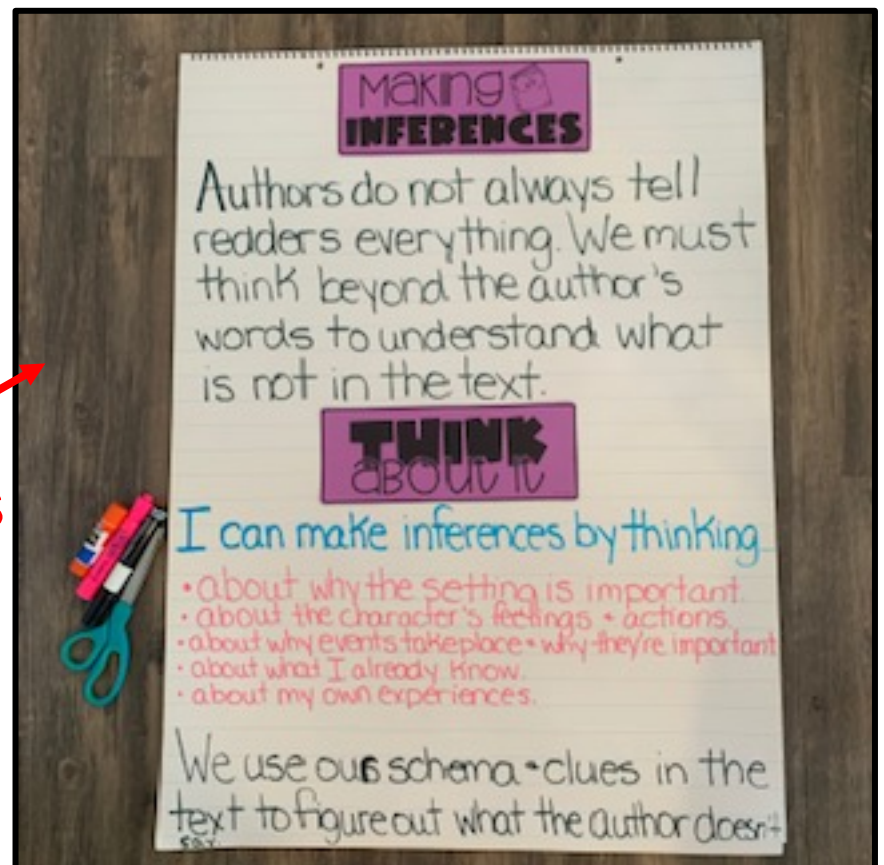 Making
INFERENCES
Authors do not always tell
readers everything. We must
think beyond the author's
words to understand what
is not in the text.
THINK
aBOUT IT
S
I can make inferences by thinking...
• about why the setting is important.
• about the character's feelings + actions.
• about why events take place + why they're important
• about what I already know.
• about my own experiences.
We use our schema + clues in the
text to figure out what the author doesn't
say.